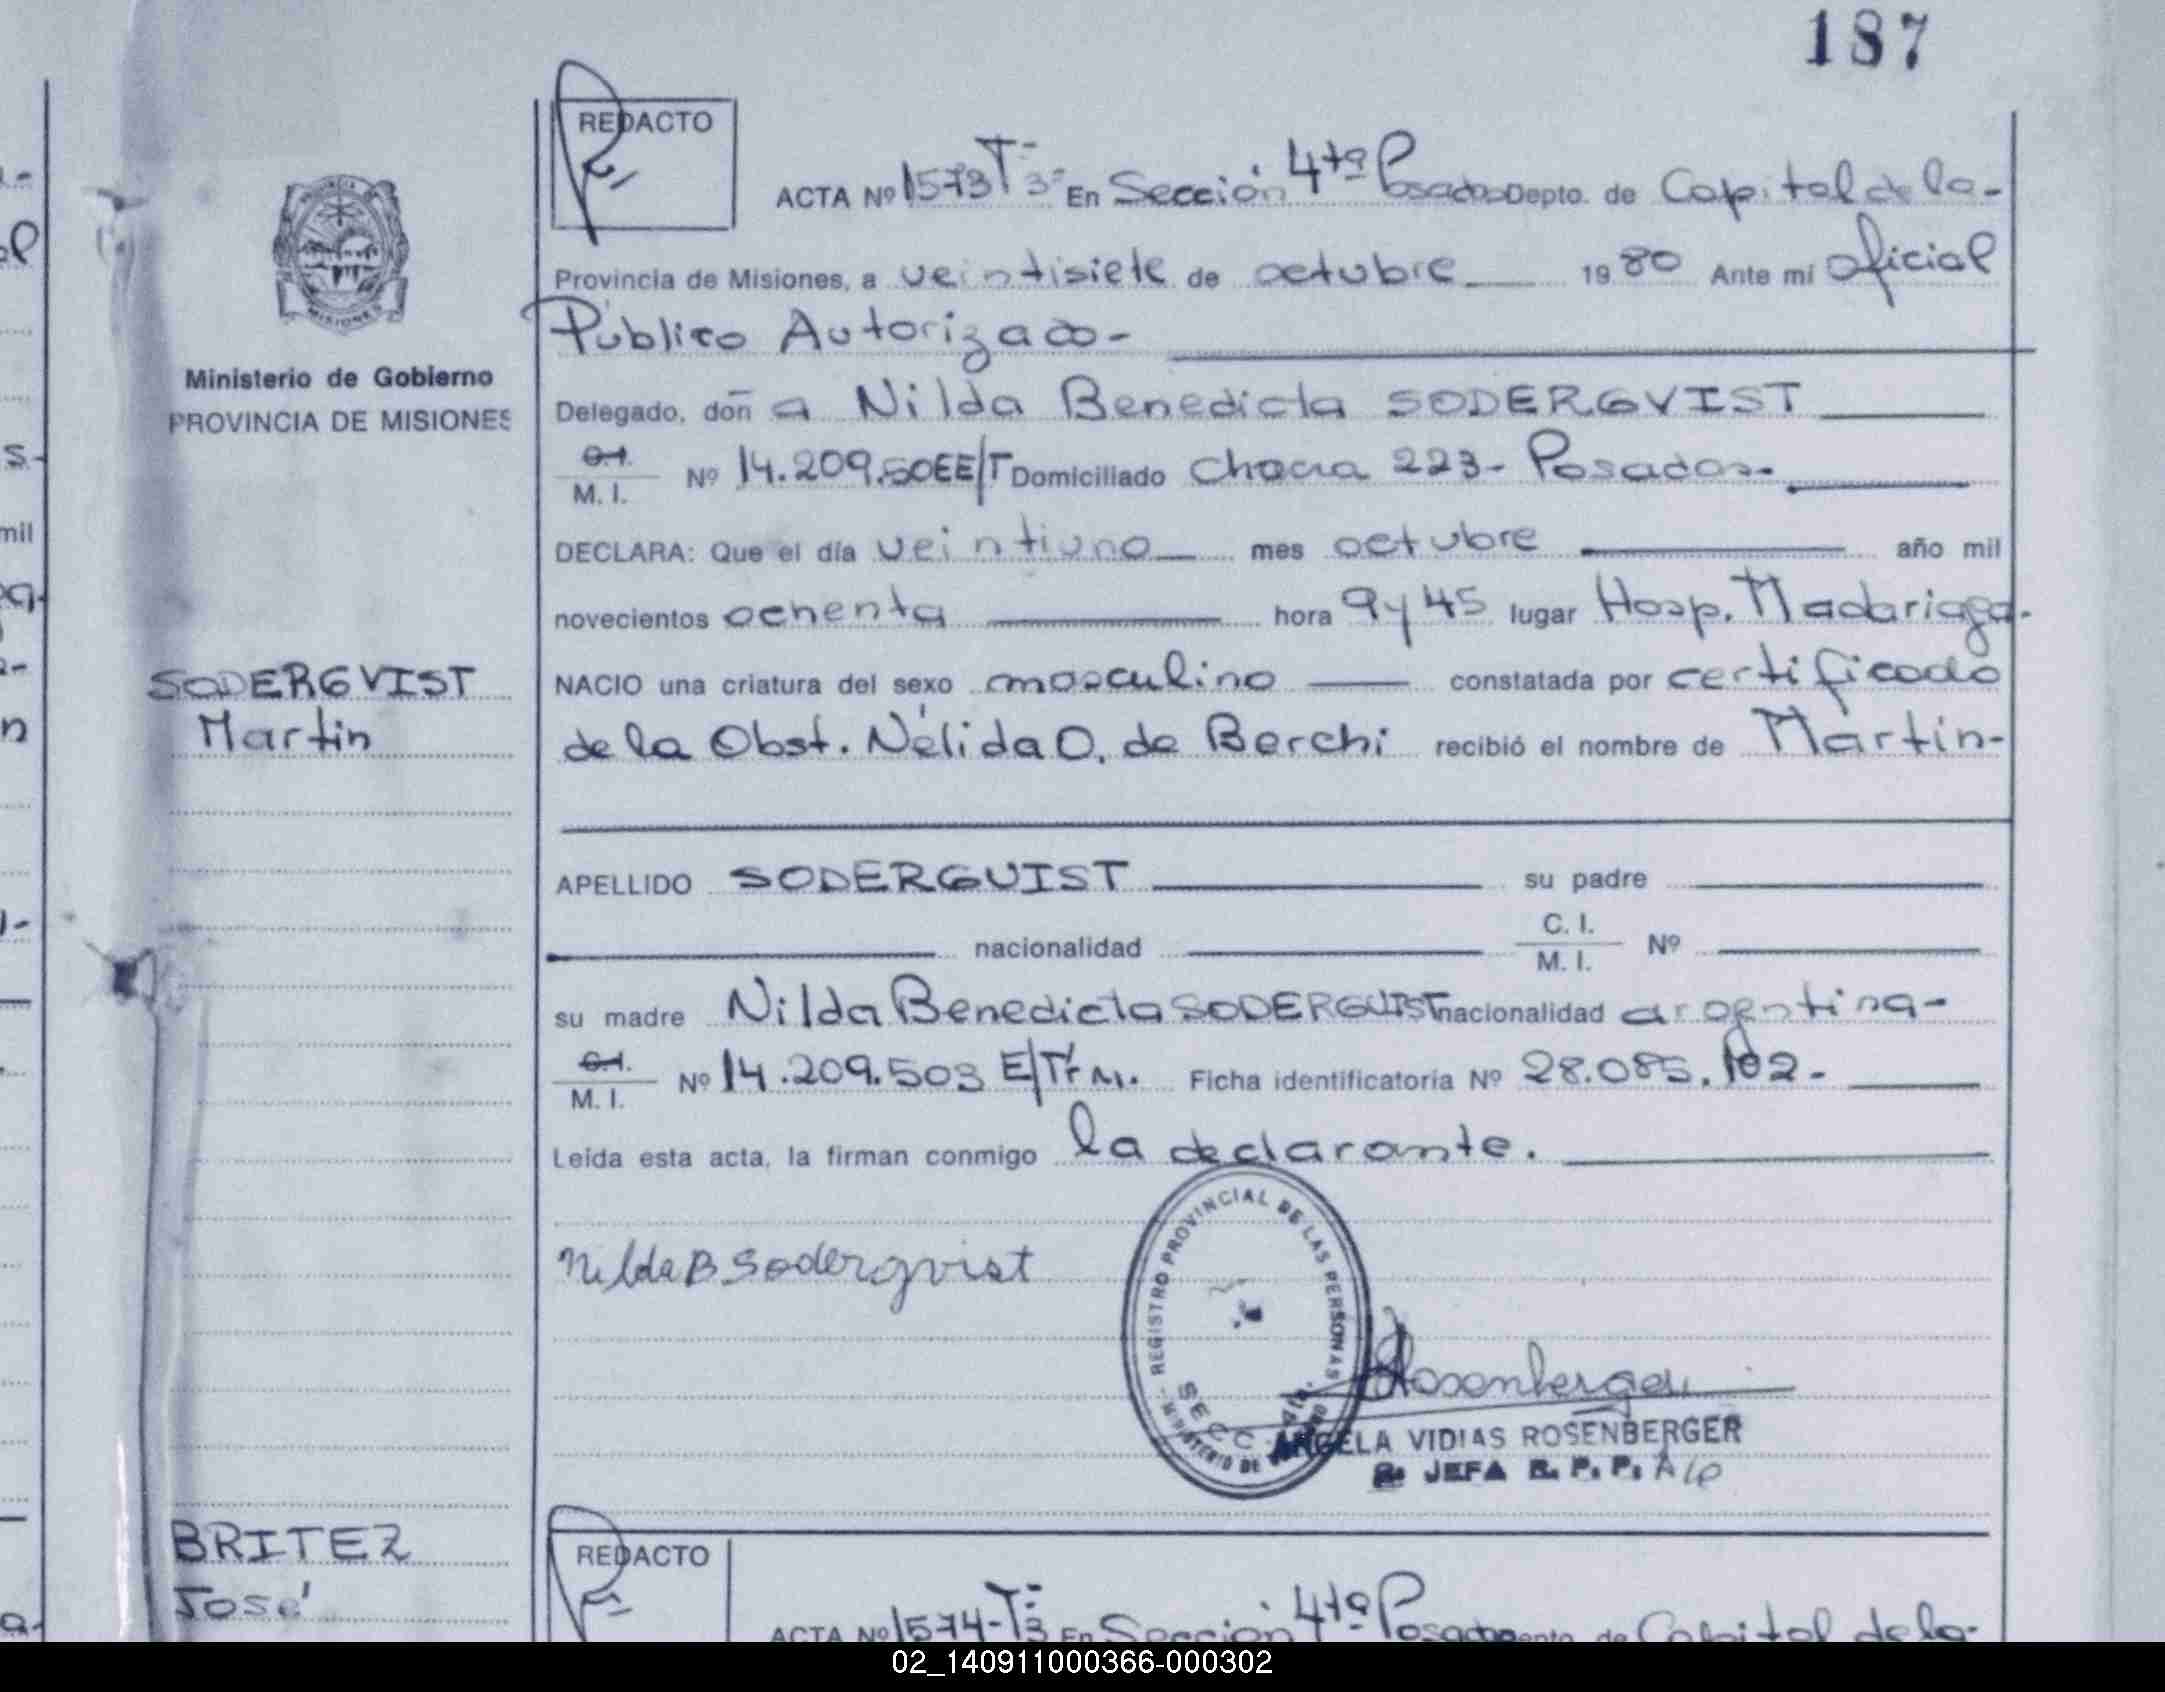 187
REDACTO
ACTA Nº 1573 Tº 3º En Sección 4ta Posadas Depto. de Capital de la-
Provincia de Misiones, a veintisiete de octubre 19 80 Ante mí oficial
Público Autorizado-
Ministerio de Gobierno
PROVINCIA DE MISIONES
Delegado, doñ a Nilda Benedicta SODERGVIST
C.I. M. I. Nº 14.209. E/T Domiciliado Chacra 223- Posadas-
DECLARA: Que el día veintiuno mes octubre año mil
novecientos ochenta hora 9 y 45 lugar Hosp. Madariaga-
SODERGVIST
Martin
NACIO una criatura del sexo masculino constatada por certificado
de la Obst. Nélida O. de Berchi recibió el nombre de Martín-
APELLIDO SODERGUIST su padre
nacionalidad C. I. M. I. Nº
su madre Nilda Benedicta SODERGUIST nacionalidad argentina-
C.I. M. I. Nº 14.209.503 E/Tr m. Ficha identificatoria Nº 28.085.
Leída esta acta, la firman conmigo la declarante.
Nilda B Soderqvist
REGISTRO PROVINCIAL DE LAS PERSONAS
MINISTERIO DE GOBIERNO
SECC. 4ta.
Rosenberger
ANGELA VIDIAS ROSENBERGER
JEFA R. P. P.
BRITEZ
José
REDACTO
ACTA Nº 1574- Tº 3 En Sección 4ta Posadas de Capital de la-
02_140911000366-000302